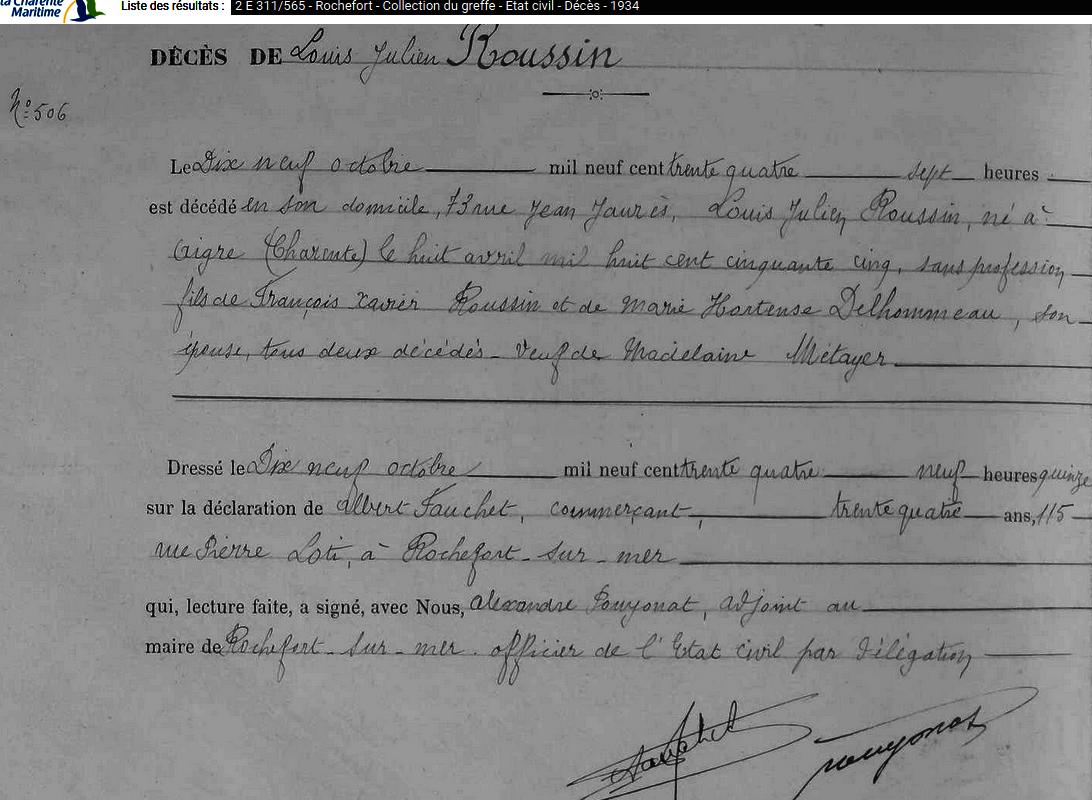 la Charente
Maritime
Liste des résultats : 2 E 311/565 - Rochefort - Collection du greffe - Etat civil - Décès - 1934
DÉCÈS DE Louis Julien Roussin
N° 506
Le Dix neuf octobre mil neuf cent trente quatre sept heures
est décédé en son domicile, 73 rue Jean Jaurès, Louis Julien Roussin, né à
Aigre (Charente) le huit avril mil huit cent cinquante cinq, sans profession
fils de François Xavier Roussin et de Marie Hortense Delhommeau, son
épouse, tous deux décédés - Veuf de Madelaine Métayer
Dressé le Dix neuf octobre mil neuf cent trente quatre neuf heures quinze
sur la déclaration de Albert Fauchet, commerçant, trente quatre ans, 115
rue Pierre Loti, à Rochefort - sur - mer
qui, lecture faite, a signé, avec Nous, Alexandre Pouyonat, adjoint au
maire de Rochefort - sur - mer . officier de l'Etat civil par délégation
Fauchet Pouyonat